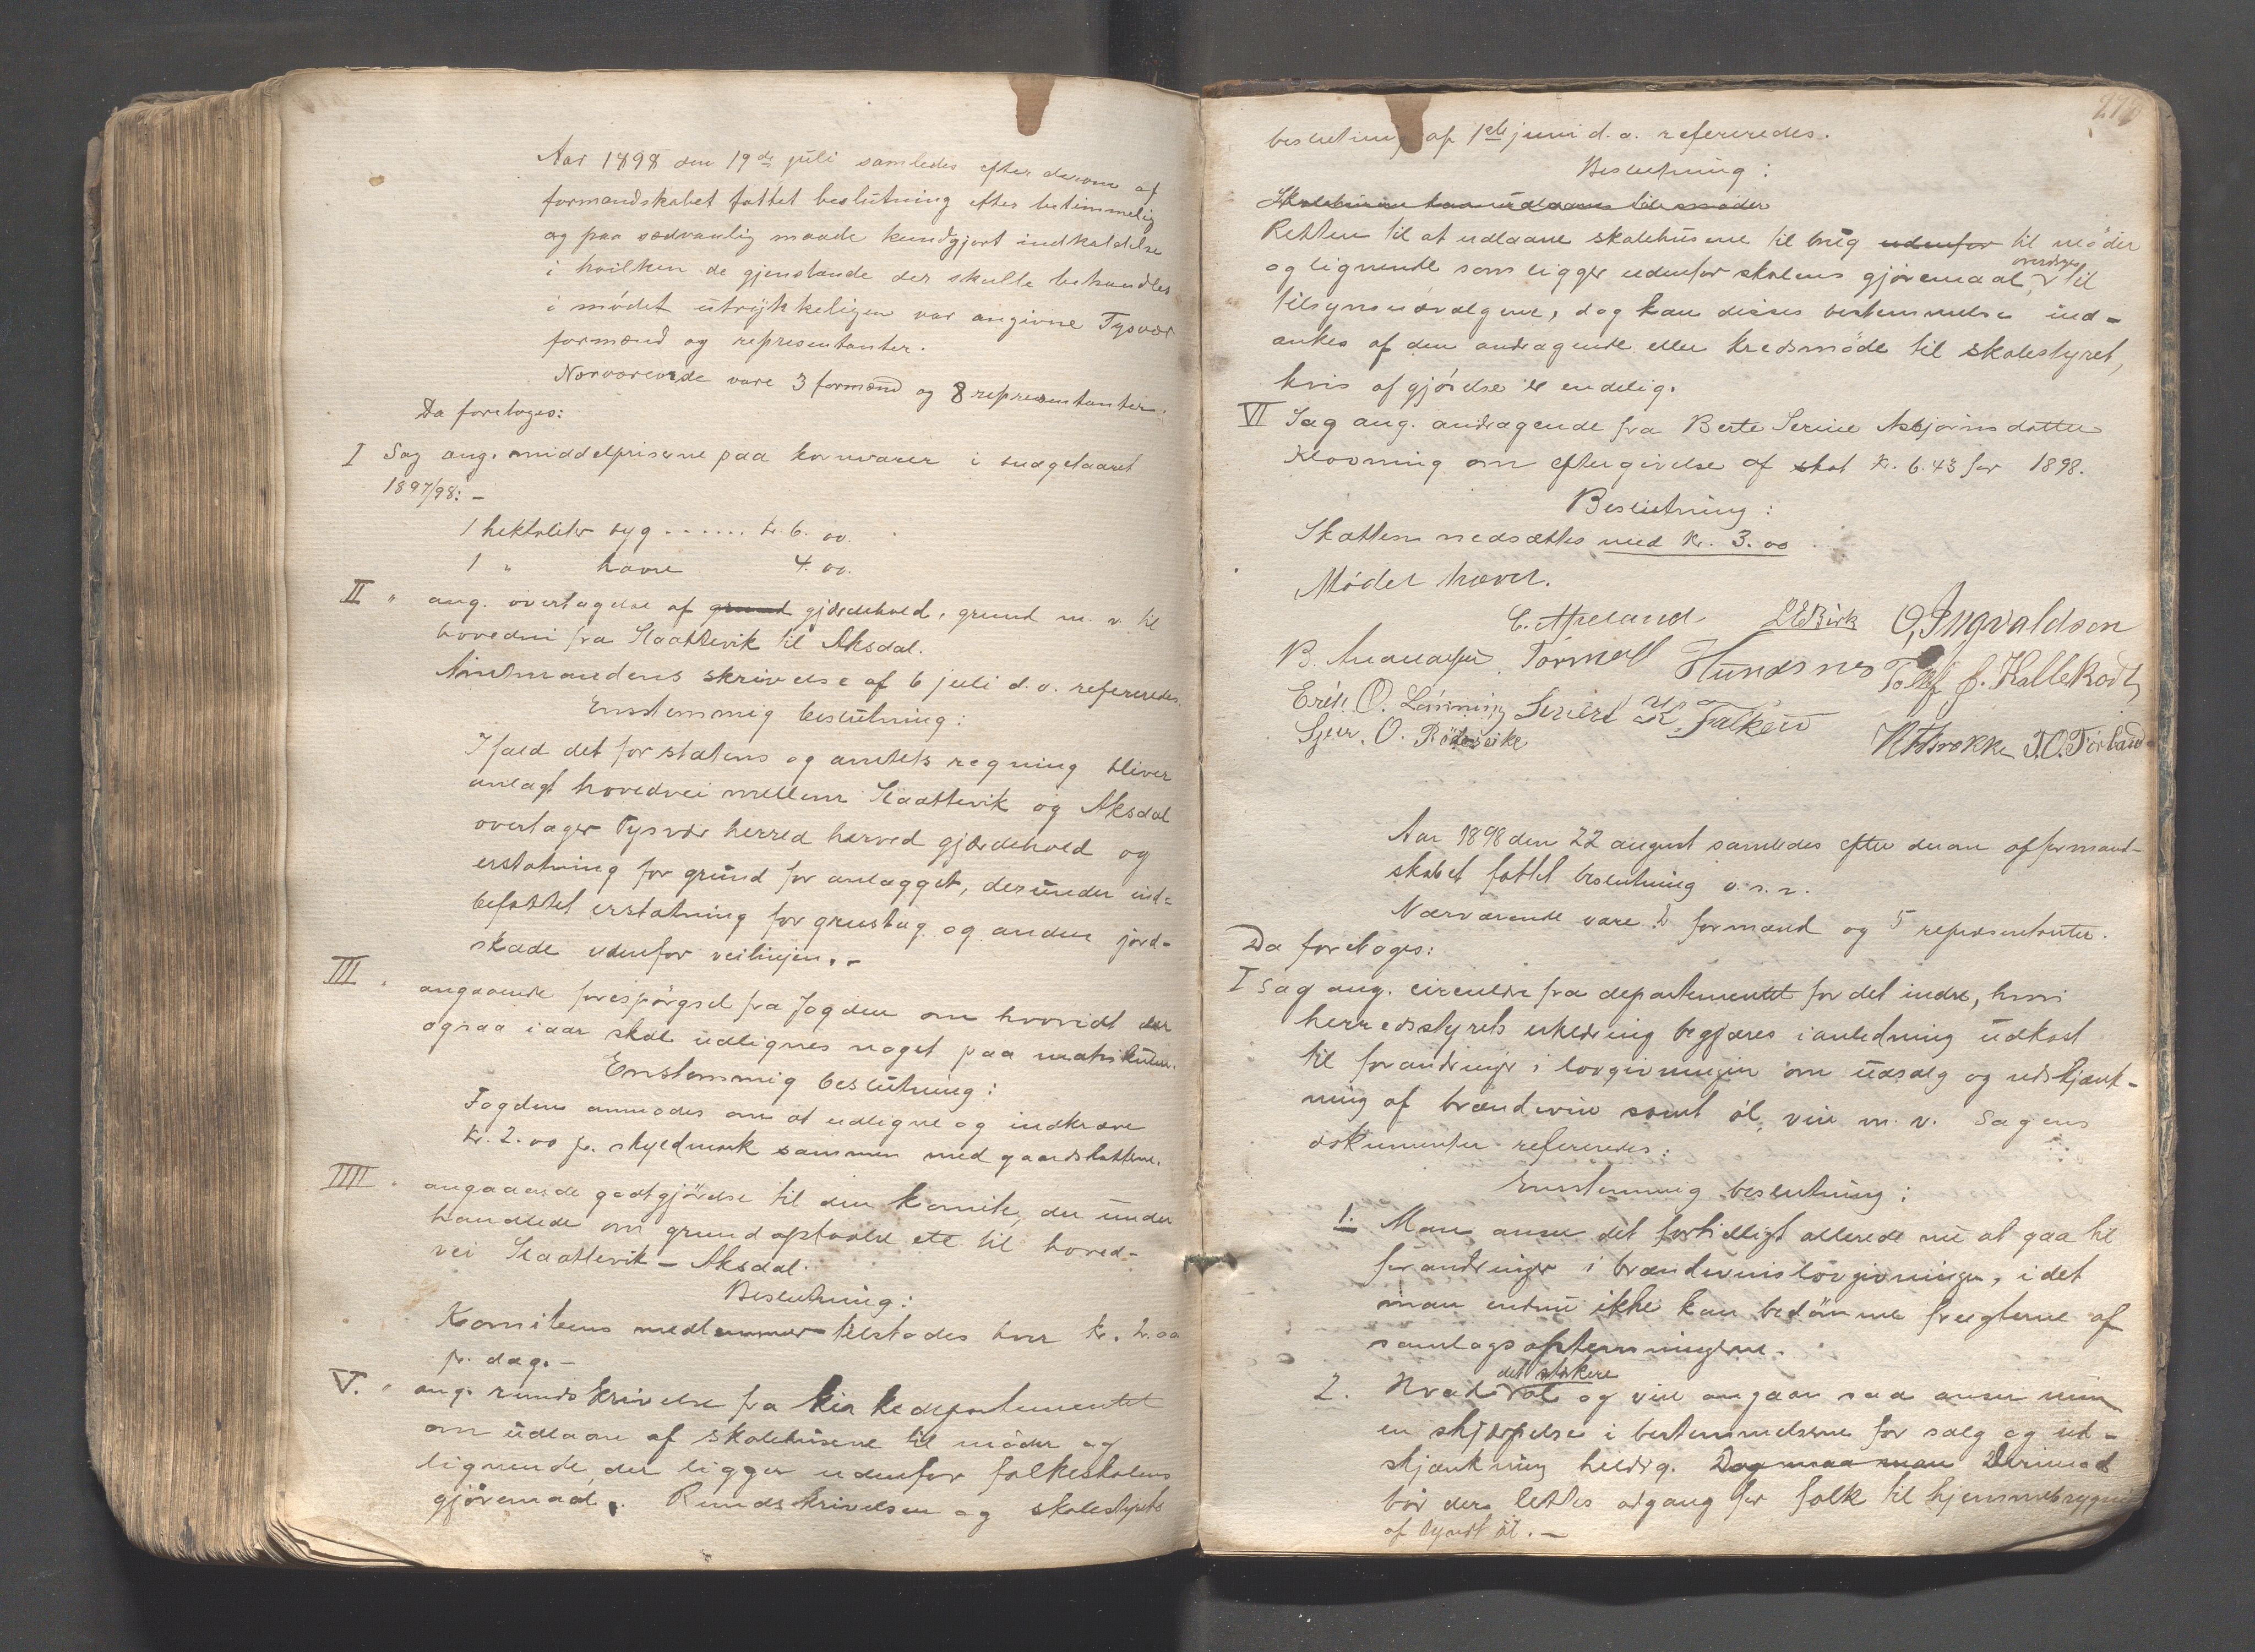 Aar 1898 den 19de juli samledes efter derom af
formandskabet fattet beslutning efter betimmelig
og paa sædvanlig maade kundgjort indkaldelse
i hvilken de gjenstande der skulle behandles
i mödet utrykkeligen var angivne Tysvær
formænd og representanter.
Nærværende vare 3 formænd og 8 representanter.
Da foretoges:
I Sag ang. middelpriserne paa kornvarer i budgetaaret
1897/98: –
1 hektoliter byg ...... kr. 6. 00.
1 " havre 4. 00.
II " ang. overtagelse af grund gjærdehold, grund m. v. til
hovedvei fra Slaattevik til Aksdal.
Amtmandens skrivelse af 6 juli d. a. refereredes.
Enstemmig beslutning:
Ifald det for statens og amtets regning bliver
anlagt hovedvei mellem Slaattevik og Aksdal
overtager Tysvær herred herved gjærdehold og
erstatning for grund for anlægget, derunder ind-
befattet erstatning for grustag og anden jord-
skade udenfor veilinjen. –
III " angaaende forespörgsel fra Fogden om hvorvidt der
ogsaa iaar skal udlignes noget paa matrikulen.
Enstemmig beslutning:
Fogden anmodes om at udligne og indkræve
kr. 2.00 pr. skyldmark sammen med gaardskatterne.
IIII " angaaende godtgjörelse til den komite, der under
handlede om grundafstaaelse etc til hoved-
vei Slaattevik – Aksdal.
Beslutning:
Komiteens medlemmer tilstodes hver kr. 2.00
pr. dag. –
V. " ang. rundskrivelse fra kirkedepartementet
om udlaan af skolehusene til möder og
lignende, der ligger udenfor folkeskolens
gjöremaal. Rundskrivelsen og skolestyrets
beslutning af 1ste juni d. a. refereredes.
Beslutning:
Skolehusene kan udlaanes til möder
Retten til at udlaane skolehusene til brug udenfor til möder
og lignende som ligger udenfor skolens gjöremaal, overdrages til
tilsynsudvalgene, dog kan disses bestemmelse ind-
ankes af den andragende eller kredsmöde til skolestyret,
hvis afgjörelse er endelig.
VI Sag ang. andragende fra Berte Serine Asbjörnsdatter
Klovning om eftergivelse af skat kr. 6.43 for 1898.
Beslutning:
Skatten nedsættes med kr. 3.00
Mödet hævet.
C. Apeland. O. Ingvaldsen
B. Tormod Hundsnes Tollef J. Hallekodt
Erik O. Lönning Sivert K. Falkeid
Sjur. O. T.O. Förland
Aar 1898 den 22 august samledes efter derom af formand-
skabet fattet beslutning o. s. v.
Nærværende vare 2 formænd og 5 repræsentanter.
Da foretoges:
I Sag ang. circulære fra departementet for det indre, hvori
herredsstyrets erklæring begjæres i anledning udkast
til forandringer i lovgivningen om udsalg og udskjænk-
ning af brændevin samt öl, vin m. v. Sagens
dokumenter refereredes:
Enstemmig beslutning:
1. Man anser det fortidligt allerede nu at gaa til
forandringer i brændevinslovgivningen, idet
man endnu ikke kan bedömme frugterne af
samlagsafstemningerne.
2. Hvad det stærkere öl og vin angaar saa anser man
en skjærpelse i bestemmelserne for salg og ud-
skjænkning heldig. Dog maa man Derimod
bör der lettes adgang for folk til hjemmebrygning
af tyndt öl. –